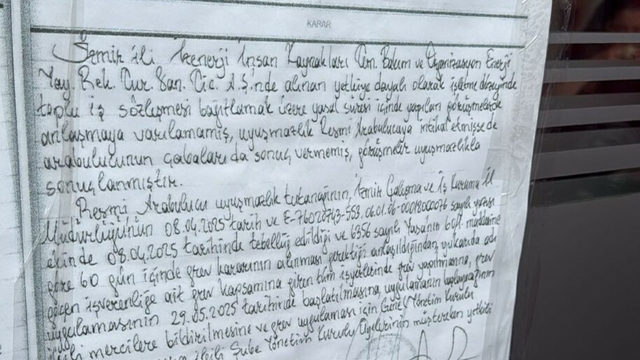 KARAR
İzmir ili İzenerji İnsan Kaynakları Tem. Bakım ve Organizasyon Enerji
Yay. Rek. Tur. San. Tic. A.Ş.nde alınan yetkiye dayalı olarak işletme düzeyinde
toplu iş sözleşmesi bağıtlamak üzere yasal süresi içinde yapılan görüşmelerde
anlaşmaya varılamamış, uyuşmazlık Resmi Arabulucuya intikal etmişse de
arabulucunun çabaları da sonuç vermemiş, görüşmeler uyuşmazlıkla
sonuçlanmıştır.
Resmi Arabulucu uyuşmazlık tutanağının, İzmir Çalışma ve İş Kurumu İl
Müdürlüğü'nün 08.04.2025 tarih ve sayılı yazısı
ekinde 08.04.2025 tarihinde tebellüğ edildiği ve 6356 sayılı Yasa'nın ilgili maddelerine
göre 60 gün içinde grev kararının alınması gerektiği anlaşıldığından yukarıda adı
geçen işverenliğe ait grev kapsamına giren tüm işyerlerinde grev yapılmasına, grev
uygulamasının 29.05.2025 tarihinde başlatılmasına, uygulamanın
mercilere bildirilmesine ve grev uygulaması için Genel Yönetim Kurulu
Şube Yönetim Kurulu Üyelerinin müştereken yetkili